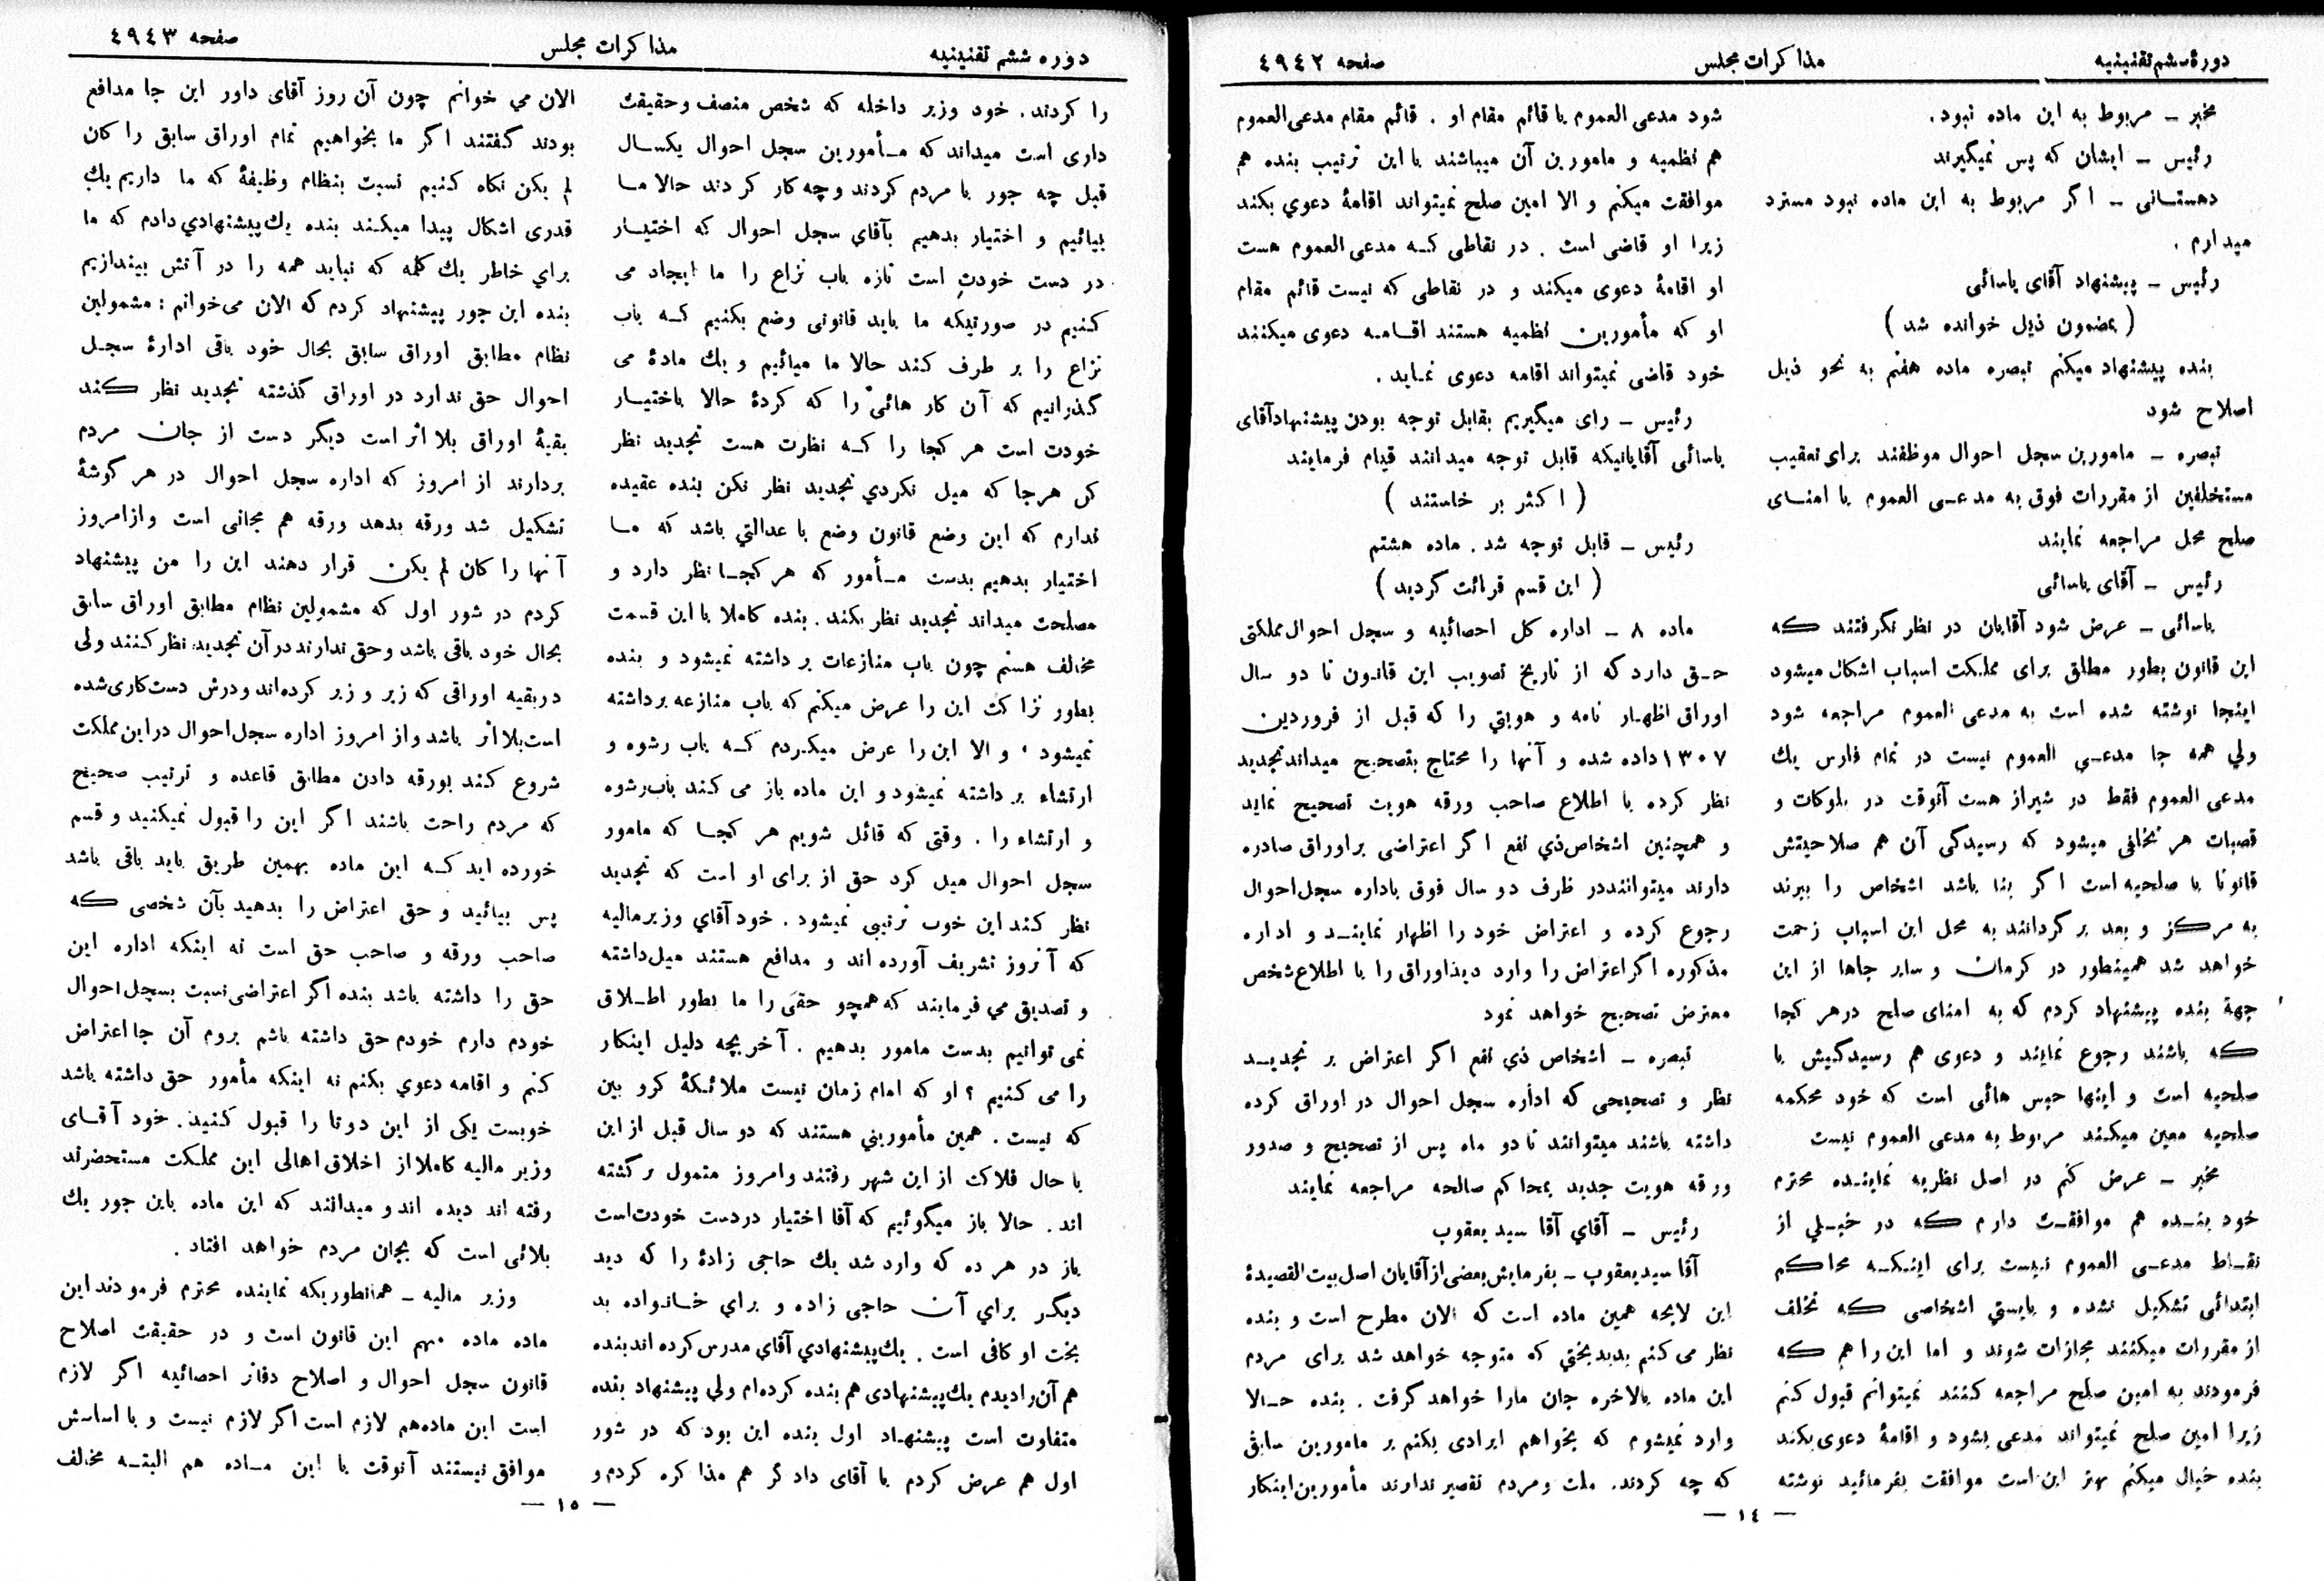 دورهٔ ششم تقنینیه
مذاکرات مجلس
صفحه ٤٩٤٢
مخبر ــ مربوط به این ماده نبود.
رئیس ــ ایشان که پس نمیگیرند
دهستانی ــ اگر مربوط به این ماده نبود مسترد
میدارم .
رئیس ــ پیشنهاد آقای یاسائی
( بمضمون ذیل خوانده شد )
بنده پیشنهاد میکنم تبصره ماده هفتم به نحو ذیل
اصلاح شود
تبصره ــ مامورین سجل احوال موظفند برای تعقیب
متخلفین از مقررات فوق به مدعی العموم یا امنای
صلح محل مراجعه نمایند
رئیس ــ آقای یاسائی
یاسائی ــ عرض شود آقایان در نظر نگرفتند که
این قانون بطور مطلق برای مملکت اسباب اشکال میشود
اینجا نوشته شده است به مدعی العموم مراجعه شود
ولي همه جا مدعی العموم نیست در تمام فارس یك
مدعی العموم فقط در شیراز هست آنوقت در بلوکات و
قصبات هر تخلفی میشود که رسیدگی آن هم صلاحیتش
قانونا با صلحیه است اگر بنا باشد اشخاص را ببرند
به مرکز و بعد برگردانند به محل این اسباب زحمت
خواهد شد همینطور در کرمان و سایر جاها از این
جهة بنده پیشنهاد کردم که به امنای صلح در هر کجا
که باشند رجوع نمایند و دعوی هم رسیدگیش با
صلحیه است و اینها حبس هائی است که خود محکمه
صلحیه معین میکند مربوط به مدعی العموم نیست
مخبر ــ عرض کنم در اصل نظریه نماینده محترم
خود بنده هم موافقت دارم که در خیلي از
نقاط مدعی العموم نیست برای اینکه محاکم
ابتدائی تشکیل نشده و بایستي اشخاصی که تخلف
از مقررات میکنند مجازات شوند و اما این را هم که
فرمودند به امین صلح مراجعه کنند نمیتوانم قبول کنم
زیرا امین صلح نمیتواند مدعی بشود و اقامهٔ دعوی بکند
بنده خیال میکنم بهتر این است موافقت بفرمائید نوشته
شود مدعی العموم یا قائم مقام او . قائم مقام مدعی العموم
هم نظمیه و مامورین آن میباشند با این ترتیب بنده هم
موافقت میکنم و الا امین صلح نمیتواند اقامهٔ دعوي بکند
زیرا او قاضی است . در نقاطی که مدعی العموم هست
او اقامهٔ دعوی میکند و در نقاطی که نیست قائم مقام
او که مأمورین نظمیه هستند اقامه دعوی میکنند
خود قاضی نمیتواند اقامه دعوی نماید .
رئیس ــ رای میگیریم بقابل توجه بودن پیشنهاد آقای
یاسائی آقایانیکه قابل توجه میدانند قیام فرمایند
( اکثر بر خاستند )
رئیس ــ قابل توجه شد . ماده هشتم
( این قسم قرائت گردید )
ماده ۸ ــ اداره کل احصائیه و سجل احوال مملکتی
حق دارد که از تاریخ تصویب این قانون تا دو سال
اوراق اظهار نامه و هویتي را که قبل از فروردین
۱۳۰۷ داده شده و آنها را محتاج بتصحیح میداند تجدید
نظر کرده با اطلاع صاحب ورقه هویت تصحیح نماید
و همچنین اشخاص ذي نفع اگر اعتراضی بر اوراق صادره
دارند میتوانند در ظرف دو سال فوق باداره سجل احوال
رجوع کرده و اعتراض خود را اظهار نمایند و اداره
مذکوره اگر اعتراض را وارد دید اوراق را با اطلاع شخص
معترض تصحیح خواهد نمود
تبصره ــ اشخاص ذي نفع اگر اعتراض بر تجدید
نظر و تصحیحی که اداره سجل احوال در اوراق کرده
داشته باشند میتوانند تا دو ماه پس از تصحیح و صدور
ورقه هویت جدید بمحاکم صالحه مراجعه نمایند
رئیس ــ آقاي آقا سید یعقوب
آقا سید یعقوب ــ بفرمایش بعضی از آقایان اصل بیت القصیدهٔ
این لایحه همین ماده است که الان مطرح است و بنده
نظر می کنم بدبختي که متوجه خواهد شد برای مردم
این ماده بالاخره جان مارا خواهد گرفت . بنده حالا
وارد نمیشوم که بخواهم ایرادی بکنم بر مامورین سابق
که چه کردند. ملت و مردم تقصیر ندارند مأمورین اینکار
— ١٤ —
دوره ششم تقنینیه
مذاکرات مجلس
صفحه ٤٩٤٣
را کردند. خود وزیر داخله که شخص منصف و حقیقت
داری است میداند که مأمورین سجل احوال یکسال
قبل چه جور با مردم کردند و چه کار کردند حالا ما
بیائیم و اختیار بدهیم بآقای سجل احوال که اختیار
در دست خودت است تازه باب نزاع را ما ایجاد می
کنیم در صورتیکه ما باید قانونی وضع بکنیم که باب
نزاع را بر طرف کند حالا ما میائیم و یك مادهٔ می
گذرانیم که آن کار هائی را که کردهٔ حالا باختیار
خودت است هر کجا را که نظارت هست تجدید نظر
کن هرجا که میل نکردي تجدید نظر نکن بنده عقیده
ندارم که این وضع قانون وضع با عدالتي باشد که ما
اختیار بدهیم بدست مأمور که هر کجا نظر دارد و
مصلحت میداند تجدید نظر بکند . بنده کاملا با این قسمت
مخالف هستم چون باب منازعات برداشته نمیشود و بنده
بطور نزاکت این را عرض میکنم که باب منازعه برداشته
نمیشود ، و الا این را عرض میکردم که باب رشوه و
ارتشاء برداشته نمیشود و این ماده باز می کند باب رشوه
و ارتشاء را . وقتی که قائل شویم هر کجا که مامور
سجل احوال میل کرد حق از برای او است که تجدید
نظر کند این خوب ترتیبی نمیشود . خود آقاي وزیر مالیه
که آنروز تشریف آورده اند و مدافع هستند میل داشته
و تصدیق می فرمایند که همچو حقی را ما بطور اطلاق
نمی توانیم بدست مامور بدهیم . آخر بچه دلیل اینکار
را می کنیم ؟ او که امام زمان نیست ملائکهٔ کروبین
که نیست . همین مأموریني هستند که دو سال قبل از این
با حال فلاکت از این شهر رفتند و امروز متمول برگشته
اند . حالا باز میگوئیم که آقا اختیار در دست خودت است
باز در هر ده که وارد شد یك حاجی زادهٔ را که دید
دیگر براي آن حاجی زاده و براي خانواده بد
بخت او کافی است . یك پیشنهادي آقاي مدرس کرده اند بنده
هم آن را دیدم یك پیشنهادی هم بنده کرده ام ولي پیشنهاد بنده
متفاوت است پیشنهاد اول بنده این بود که در شور
اول هم عرض کردم با آقای دادگر هم مذاکره کردم و
الان می خوانم چون آن روز آقای داور این جا مدافع
بودند گفتند اگر ما بخواهیم تمام اوراق سابق را کان
لم یکن نگاه کنیم نسبت بنظام وظیفهٔ که ما داریم یك
قدری اشکال پیدا میکند بنده یك پیشنهادي دادم که ما
براي خاطر یك کلمه که نباید همه را در آتش بیندازیم
بنده این جور پیشنهاد کردم که الان می خوانم : مشمولین
نظام مطابق اوراق سابق بحال خود باقی ادارهٔ سجل
احوال حق ندارد در اوراق گذشته تجدید نظر کند
بقیهٔ اوراق بلا اثر است دیگر دست از جان مردم
بردارند از امروز که اداره سجل احوال در هر گوشهٔ
تشکیل شد ورقه بدهد ورقه هم مجانی است و از امروز
آنها را کان لم یکن قرار دهند این را من پیشنهاد
کردم در شور اول که مشمولین نظام مطابق اوراق سابق
بحال خود باقی باشد و حق ندارند در آن تجدید نظر کنند ولی
در بقیه اوراقی که زیر و زبر کرده اند و درش دست کاری شده
است بلا اثر باشد و از امروز اداره سجل احوال در این مملکت
شروع کند بورقه دادن مطابق قاعده و ترتیب صحیح
که مردم راحت باشند اگر این را قبول نمیکنید و قسم
خورده اید که این ماده بهمین طریق باید باقی باشد
پس بیائید و حق اعتراض را بدهید بآن شخصی که
صاحب ورقه و صاحب حق است نه اینکه اداره این
حق را داشته باشد بنده اگر اعتراضی نسبت بسجل احوال
خودم دارم خودم حق داشته باشم بروم آن جا اعتراض
کنم و اقامه دعوي بکنم نه اینکه مأمور حق داشته باشد
خوبست یکی از این دو تا را قبول کنید. خود آقای
وزیر مالیه کاملا از اخلاق اهالی این مملکت مستحضرند
رفته اند دیده اند و میدانند که این ماده باین جور یك
بلائی است که بجان مردم خواهد افتاد .
وزیر مالیه ــ همانطوریکه نماینده محترم فرمودند این
ماده ماده مهم این قانون است و در حقیقت اصلاح
قانون سجل احوال و اصلاح دفاتر احصائیه اگر لازم
است این ماده هم لازم است اگر لازم نیست و با اساسش
موافق نیستند آنوقت با این ماده هم البته مخالف
— ١٥ —